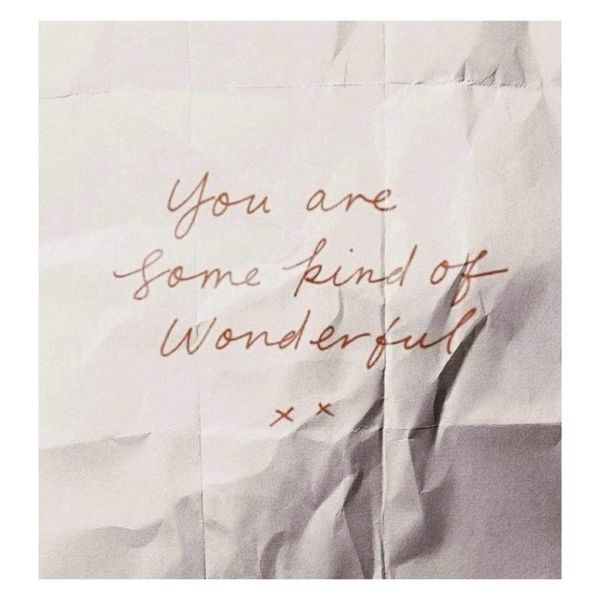 You are
some kind of
wonderful
x x